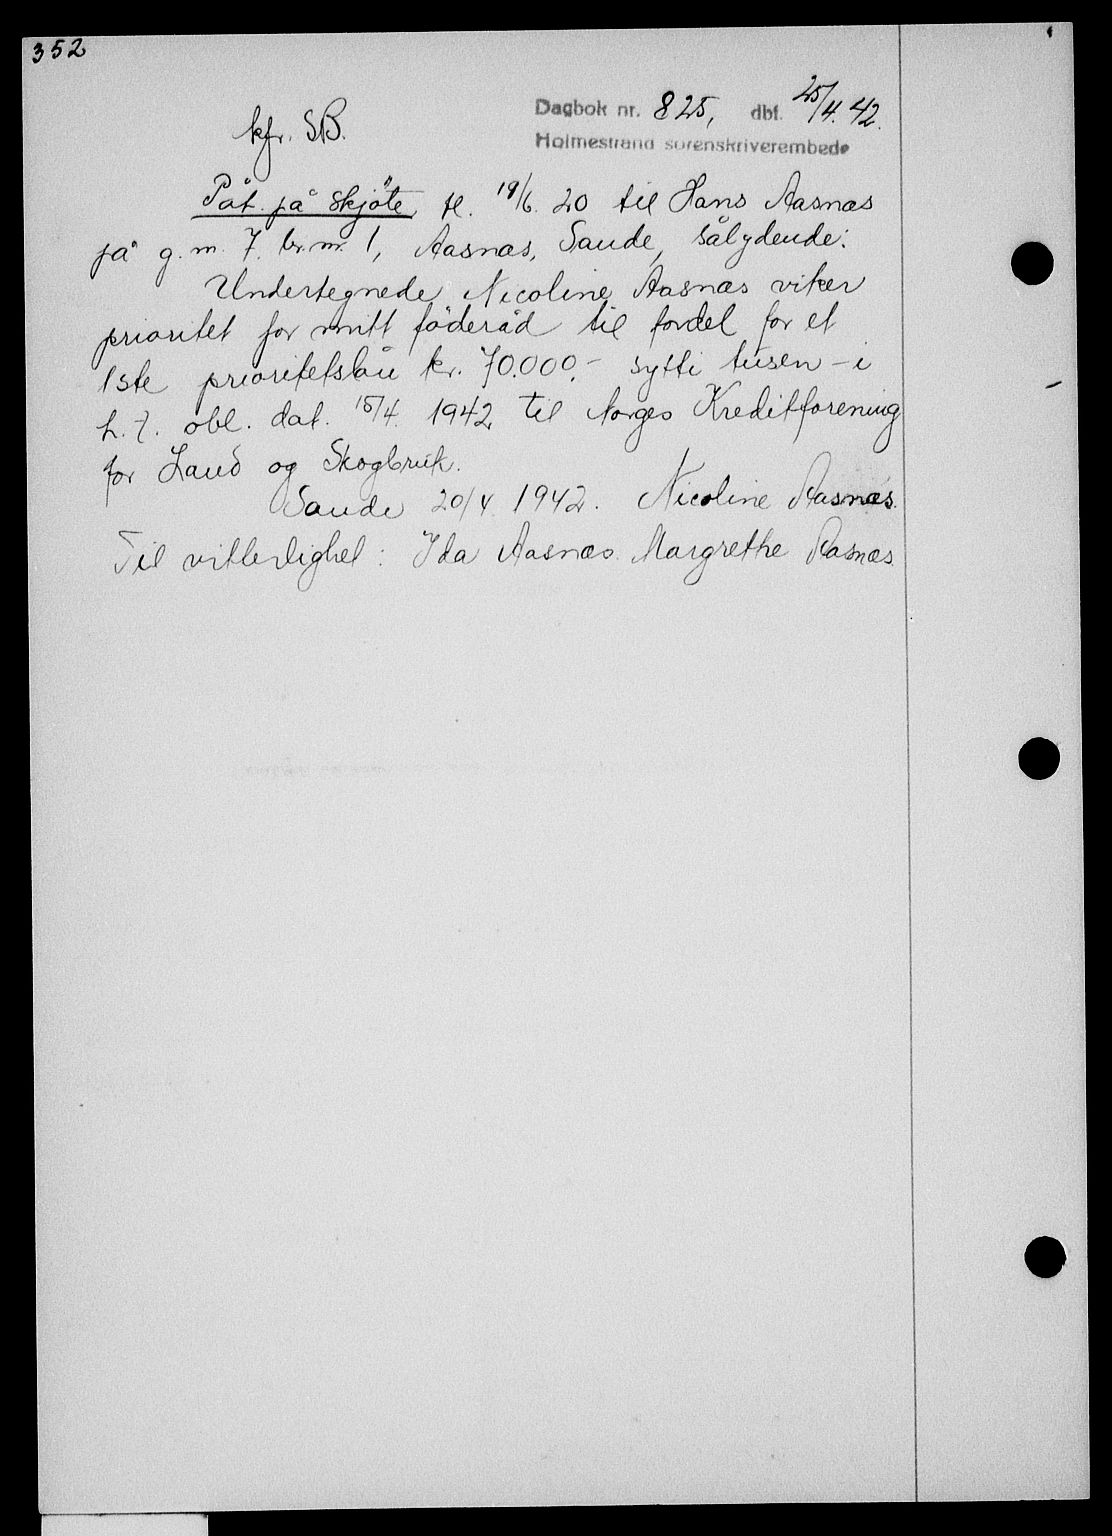 352
Dagbok nr. 825, dbf. 25/4. 42.
Holmestrand sorenskriverembede
kfr. SB.
Påt. på skjöte, tl. 19/6. 20 til Hans Aasnæs
på g. nr. 7. br. nr. 1, Aasnæs, Sande, sålydende:
Undertegnede Nicoline Aasnæs viker
prioritet for mitt föderåd til fordel for et
1ste prioritetslån kr. 70.000.- sytti tusen - i
h. t. obl. dat. 15/4. 1942 til Norges Kreditforening
for Land og Skogbruk.
Sande 20/4 1942. Nicoline Aasnæs.
Til vitterlighet: Ida Aasnæs. Margrethe Aasnæs.